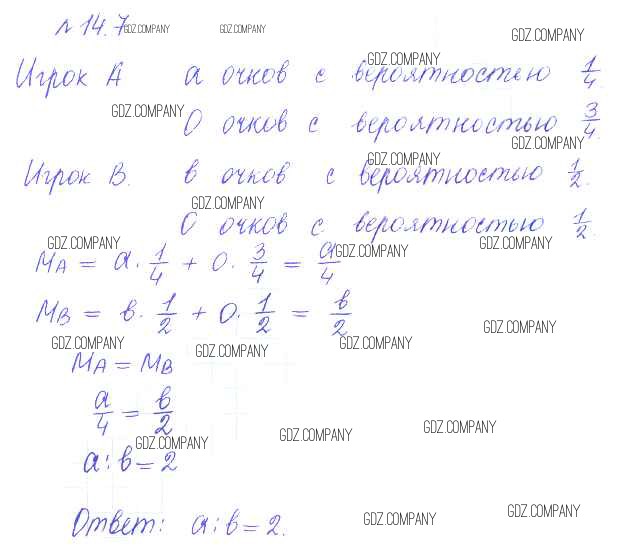 №14.7 GDZ.COMPANY GDZ.COMPANY GDZ.COMPANY
GDZ.COMPANY
Игрок А а очков с вероятностью 1/4.
GDZ.COMPANY
0 очков с вероятностью 3/4.
GDZ.COMPANY GDZ.COMPANY
Игрок В. в очков с вероятностью 1/2.
GDZ.COMPANY
0 очков с вероятностью 1/2.
GDZ.COMPANY GDZ.COMPANY GDZ.COMPANY
MA = а · 1/4 + 0 · 3/4 = а/4
MB = в · 1/2 + 0 · 1/2 = в/2
GDZ.COMPANY
GDZ.COMPANY GDZ.COMPANY GDZ.COMPANY
MA = MB
а/4 = в/2
GDZ.COMPANY GDZ.COMPANY GDZ.COMPANY
а : в = 2
Ответ: а : в = 2.
GDZ.COMPANY GDZ.COMPANY